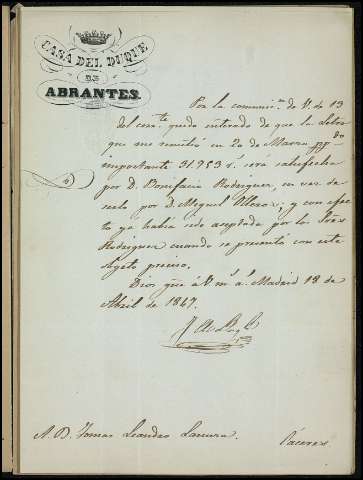 CASA DEL DUQUE
DE
ABRANTES.
Por la comunic.on de V. de 13
del corr.te quedo enterado de que la letra
que me remitió en 20 de Marzo pp.do
importante 31.753 r.s será satisfecha
por D. Bonifacio Rodriguez, en vez de
serlo por D. Miguel Ulloa; y con efec
to ya había sido aceptada por los Sres
Rodriguez cuando se presentó con este
objeto preciso.
Dios gue á V m.s a.s Madrid 18 de
Abril de 1847.
S. D. Tomas Leandro
Cáceres